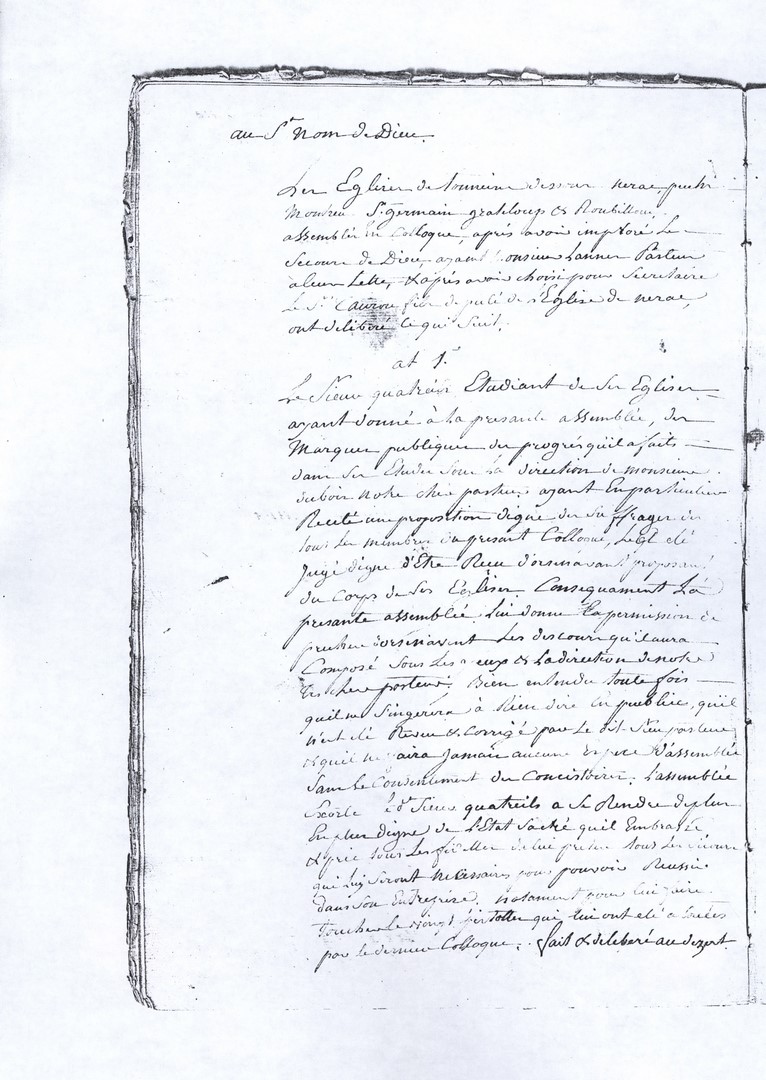 au St Nom de Dieu.
Les Eglises de tonneins nerac, puch
Monheu St germain grateloup & Roubillou,
assemblés en Colloque, après avoir imploré Le
Secours de Dieu, ayant Monsieur Pasteur
a leur Tette, & après avoir choisi pour Secretaire
Le Sr de l'Eglise de nerac,
ont deliberé ce qui Suit.
at 1.
Le Sieur Etudiant de Ses Eglises
ayant donné à la presante assemblée, des
Marques publiques des progrés qu'il a faits
dans Ses Etudes Sous la direction de monsieur
dubois notre cher pasteur ayant En particulier
Recité une proposition digne des Suffrages de
tous Les membres du presant Colloque, a eté
Jugé digne d'Etre Recu d'orsenavant proposant
du Corps de Ses Eglises Consequament La
presante assemblée Lui donne La permission de
precher dorsenavent Les discours qu'il aura
Composé Sous Les yeux & La direction de notre
tres cher pasteur. Bien entendu toute fois
quil ne S'ingerera à Rien dire En publiec, qu'il
n'est eté Reveu & Corrigé par Le dit Sieur pasteur
& quil ne faira Jamais aucune Espece d'assemblée
Sans Le Consentement du Concistoire. L'assemblée
Exorte Le dt Sieur quatreils a Se Rendre de plus
En plus digne de L'Etat Sacré quil Embrasse
& prie tous Les fidelles de lui preter tous Les Secours
qui Luy Seront necessaires pour pouvoir Reussir
dans Son Entreprise, notament pour Lui faire
Toucher Le vingt pistolles qui Lui ont eté
par Le dernier Colloque. fait & deliberé au dezert